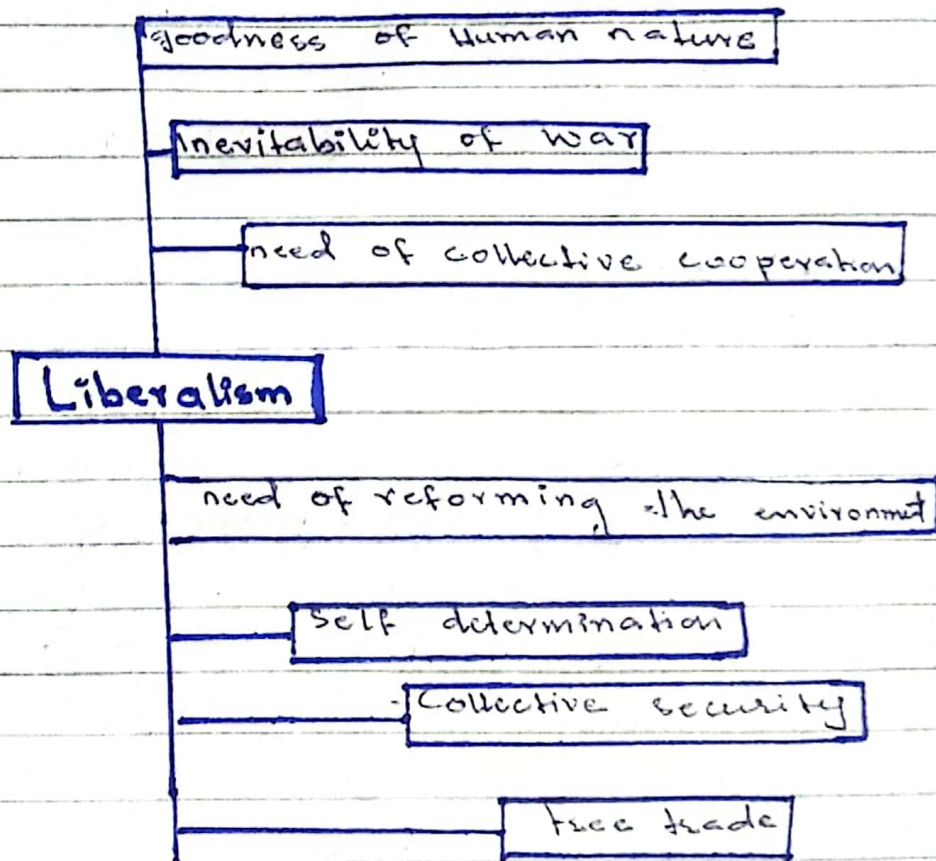 goodness of Human nature
inevitability of war
need of collective cooperation
Liberalism
need of reforming the environmt
Self determination
Collective security
free trade